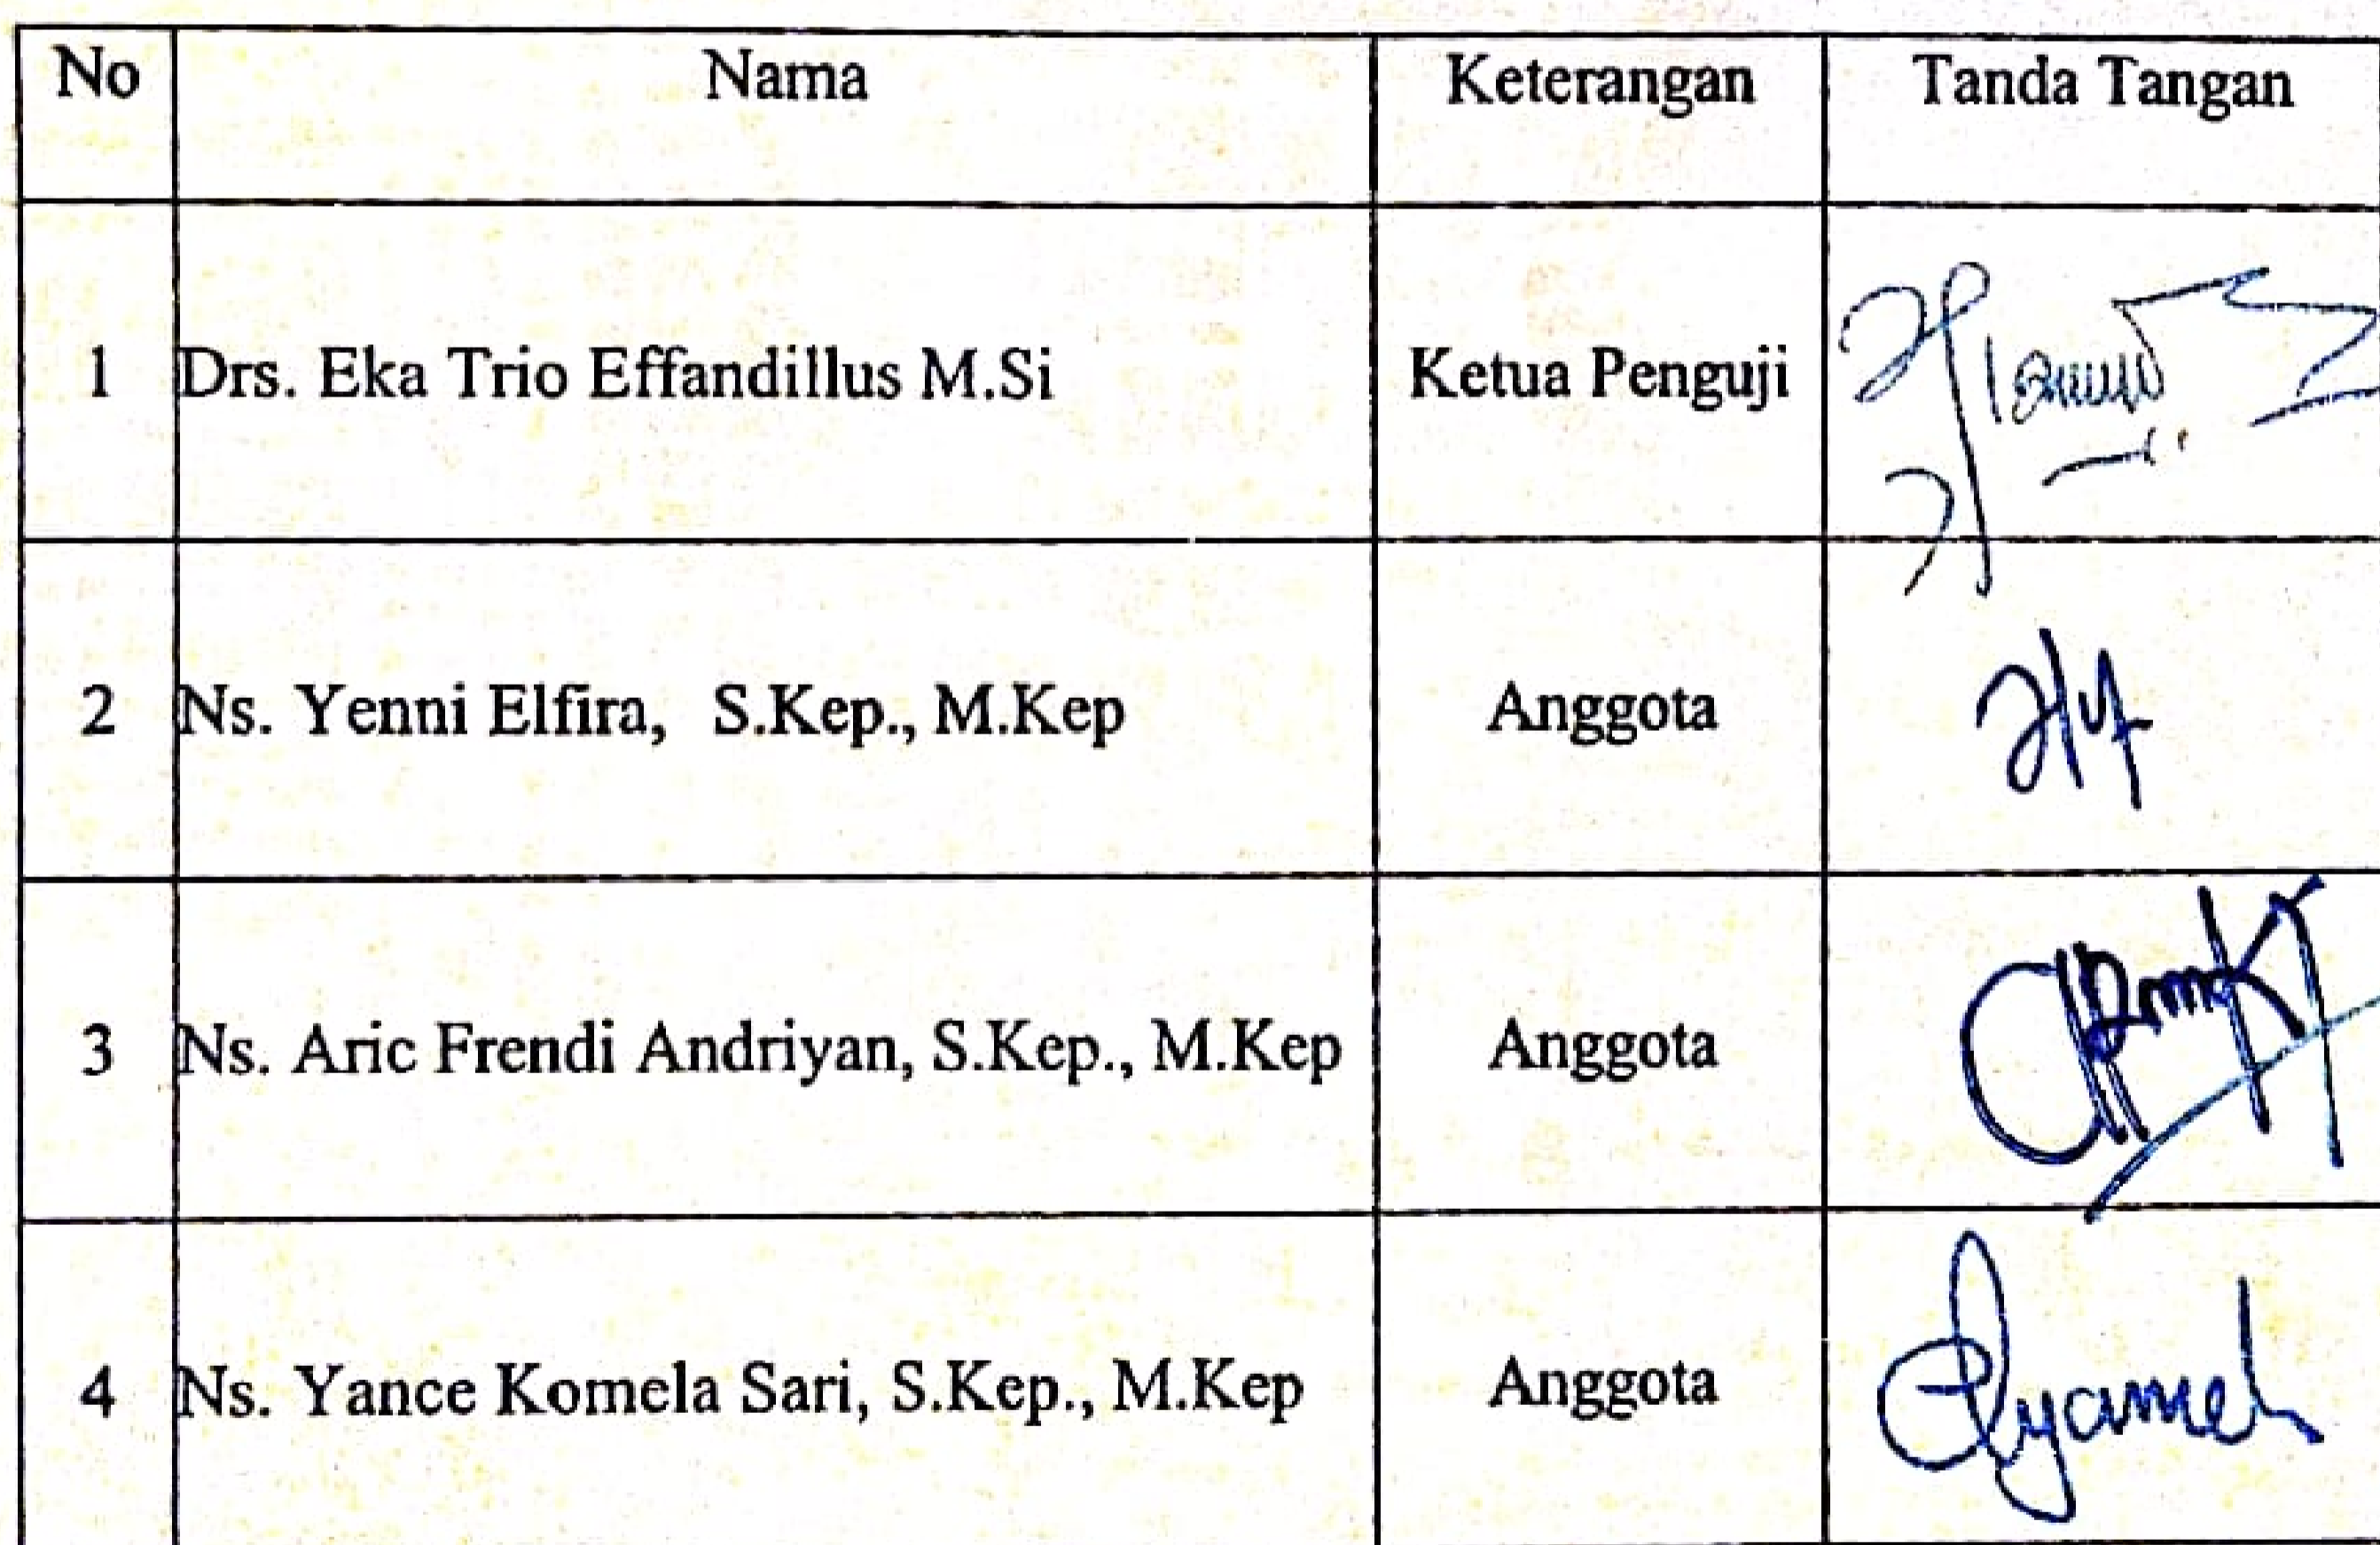 No Nama Keterangan Tanda Tangan
1 Drs. Eka Trio Effandillus M.Si Ketua Penguji
2 Ns. Yenni Elfira, S.Kep., M.Kep Anggota
3 Ns. Aric Frendi Andriyan, S.Kep., M.Kep Anggota
4 Ns. Yance Komela Sari, S.Kep., M.Kep Anggota